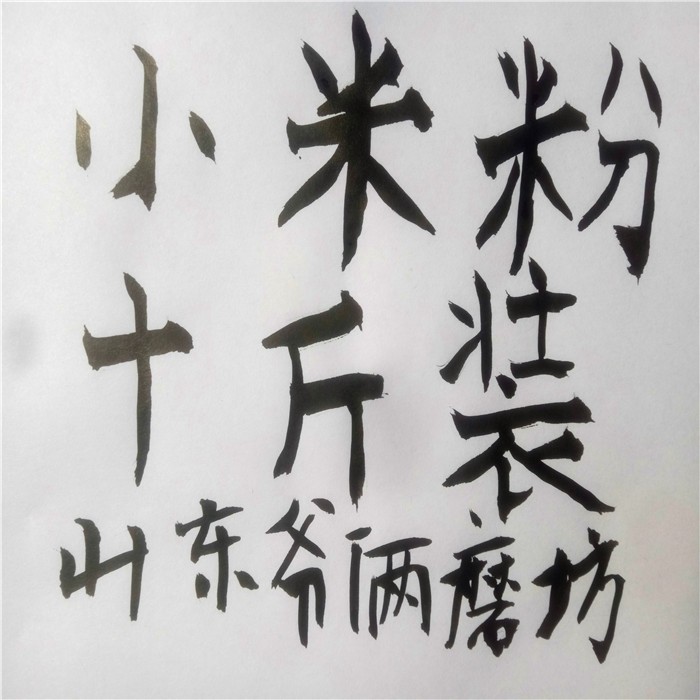 小米粉
十斤装
山东爷俩磨坊